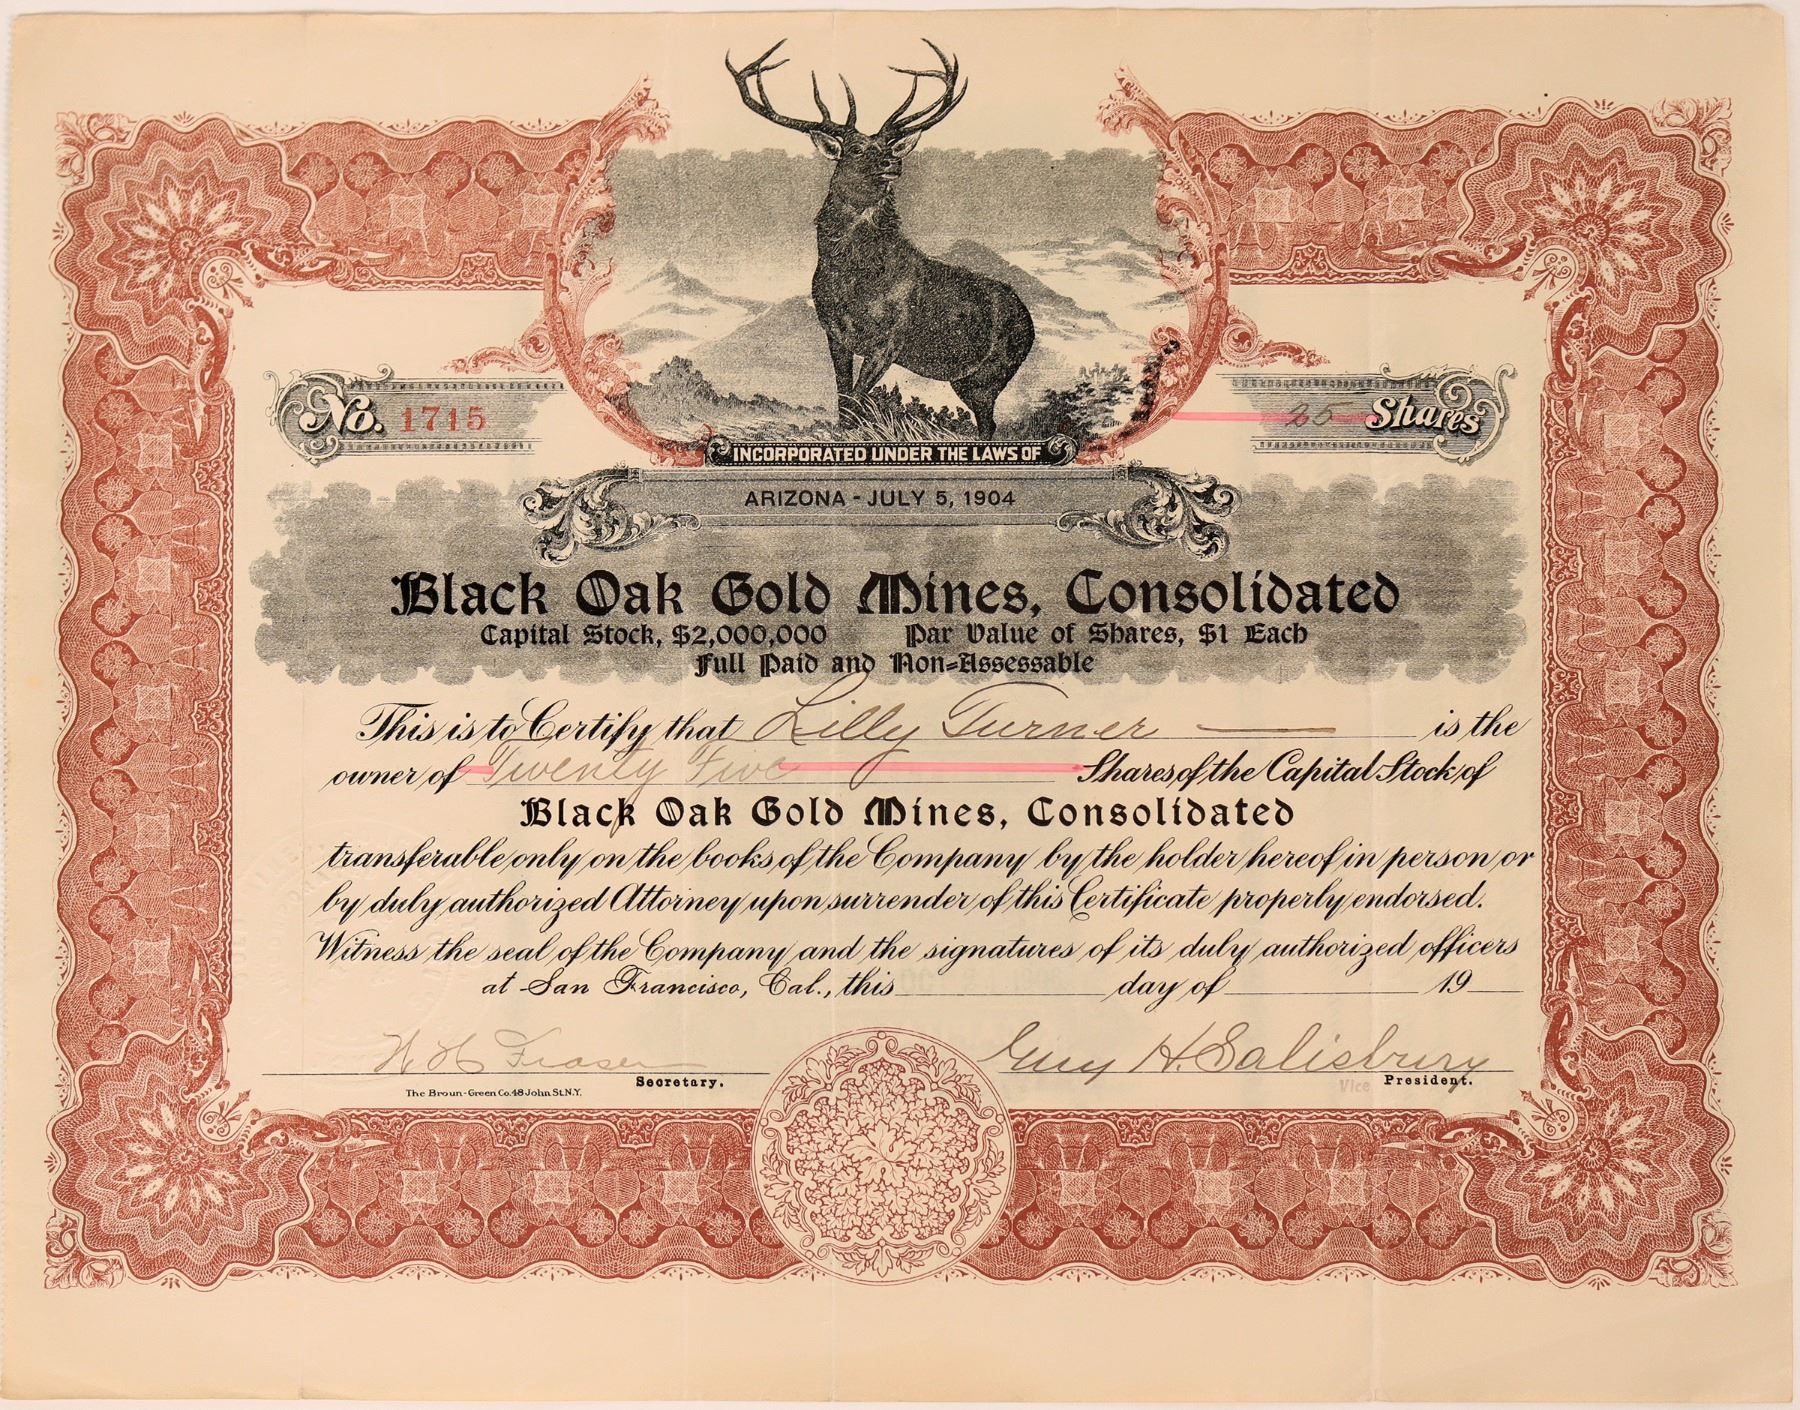 No. 1715
25 Shares
INCORPORATED UNDER THE LAWS OF
ARIZONA - JULY 5, 1904
Black Oak Gold Mines, Consolidated
Capital Stock, $2,000,000 Par Value of Shares, $1 Each
Full Paid and Non-Assessable
This is to Certify that Lilly Turner is the
owner of Twenty Five Shares of the Capital Stock of
Black Oak Gold Mines, Consolidated
transferable only on the books of the Company by the holder hereof in person or
by duly authorized Attorney upon surrender of this Certificate properly endorsed.
Witness the seal of the Company and the signatures of its duly authorized officers
at San Francisco, Cal., this day of 19
Fraser Guy H. Salisbury
Secretary. Vice President.
The Broun-Green Co. 48 John St. N.Y.